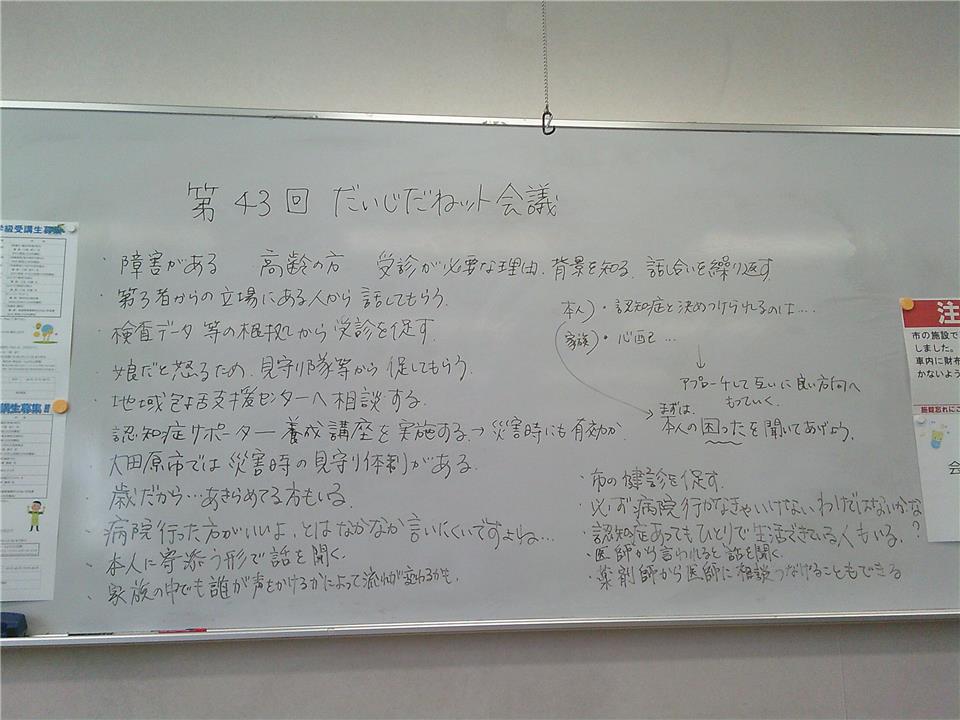 第43回 だいじだねット会議
・障害がある 高齢の方 受診が必要な理由、背景を知る、話し合いを繰り返す
・第3者からの立場にある人から話してもらう。
・検査データ等の根拠から受診を促す。
・娘だと怒るため、見守り隊等から促してもらう。
・地域包括支援センターへ相談する。
・認知症サポーター養成講座を実施する→災害時にも有効か
・大田原市では災害時の見守り体制がある。
・歳だから…あきらめてる方もいる。
・病院行った方がいいよ、とはなかなか言いにくいですよね…
・本人に寄添う形で話を聞く。
・家族の中でも誰が声をかけるかによって流れが変わるかも。
本人)・認知症と決めつけられるのは…
家族)・心配…
↓
アプローチして互いに良い方向へ
もっていく。
まずは、
本人の困ったを聞いてあげよう。
・市の健診を促す。
・必ず病院行かなきゃいけないわけではないかな?
・認知症あってもひとりで生活できている人もいる。
・医師から言われると話を聞く。
・薬剤師から医師に相談つなげることもできる
学級受講生募集
講生募集!!
注
市の施設で
しました。
車内に財布
かないよう
施錠忘れにご
会